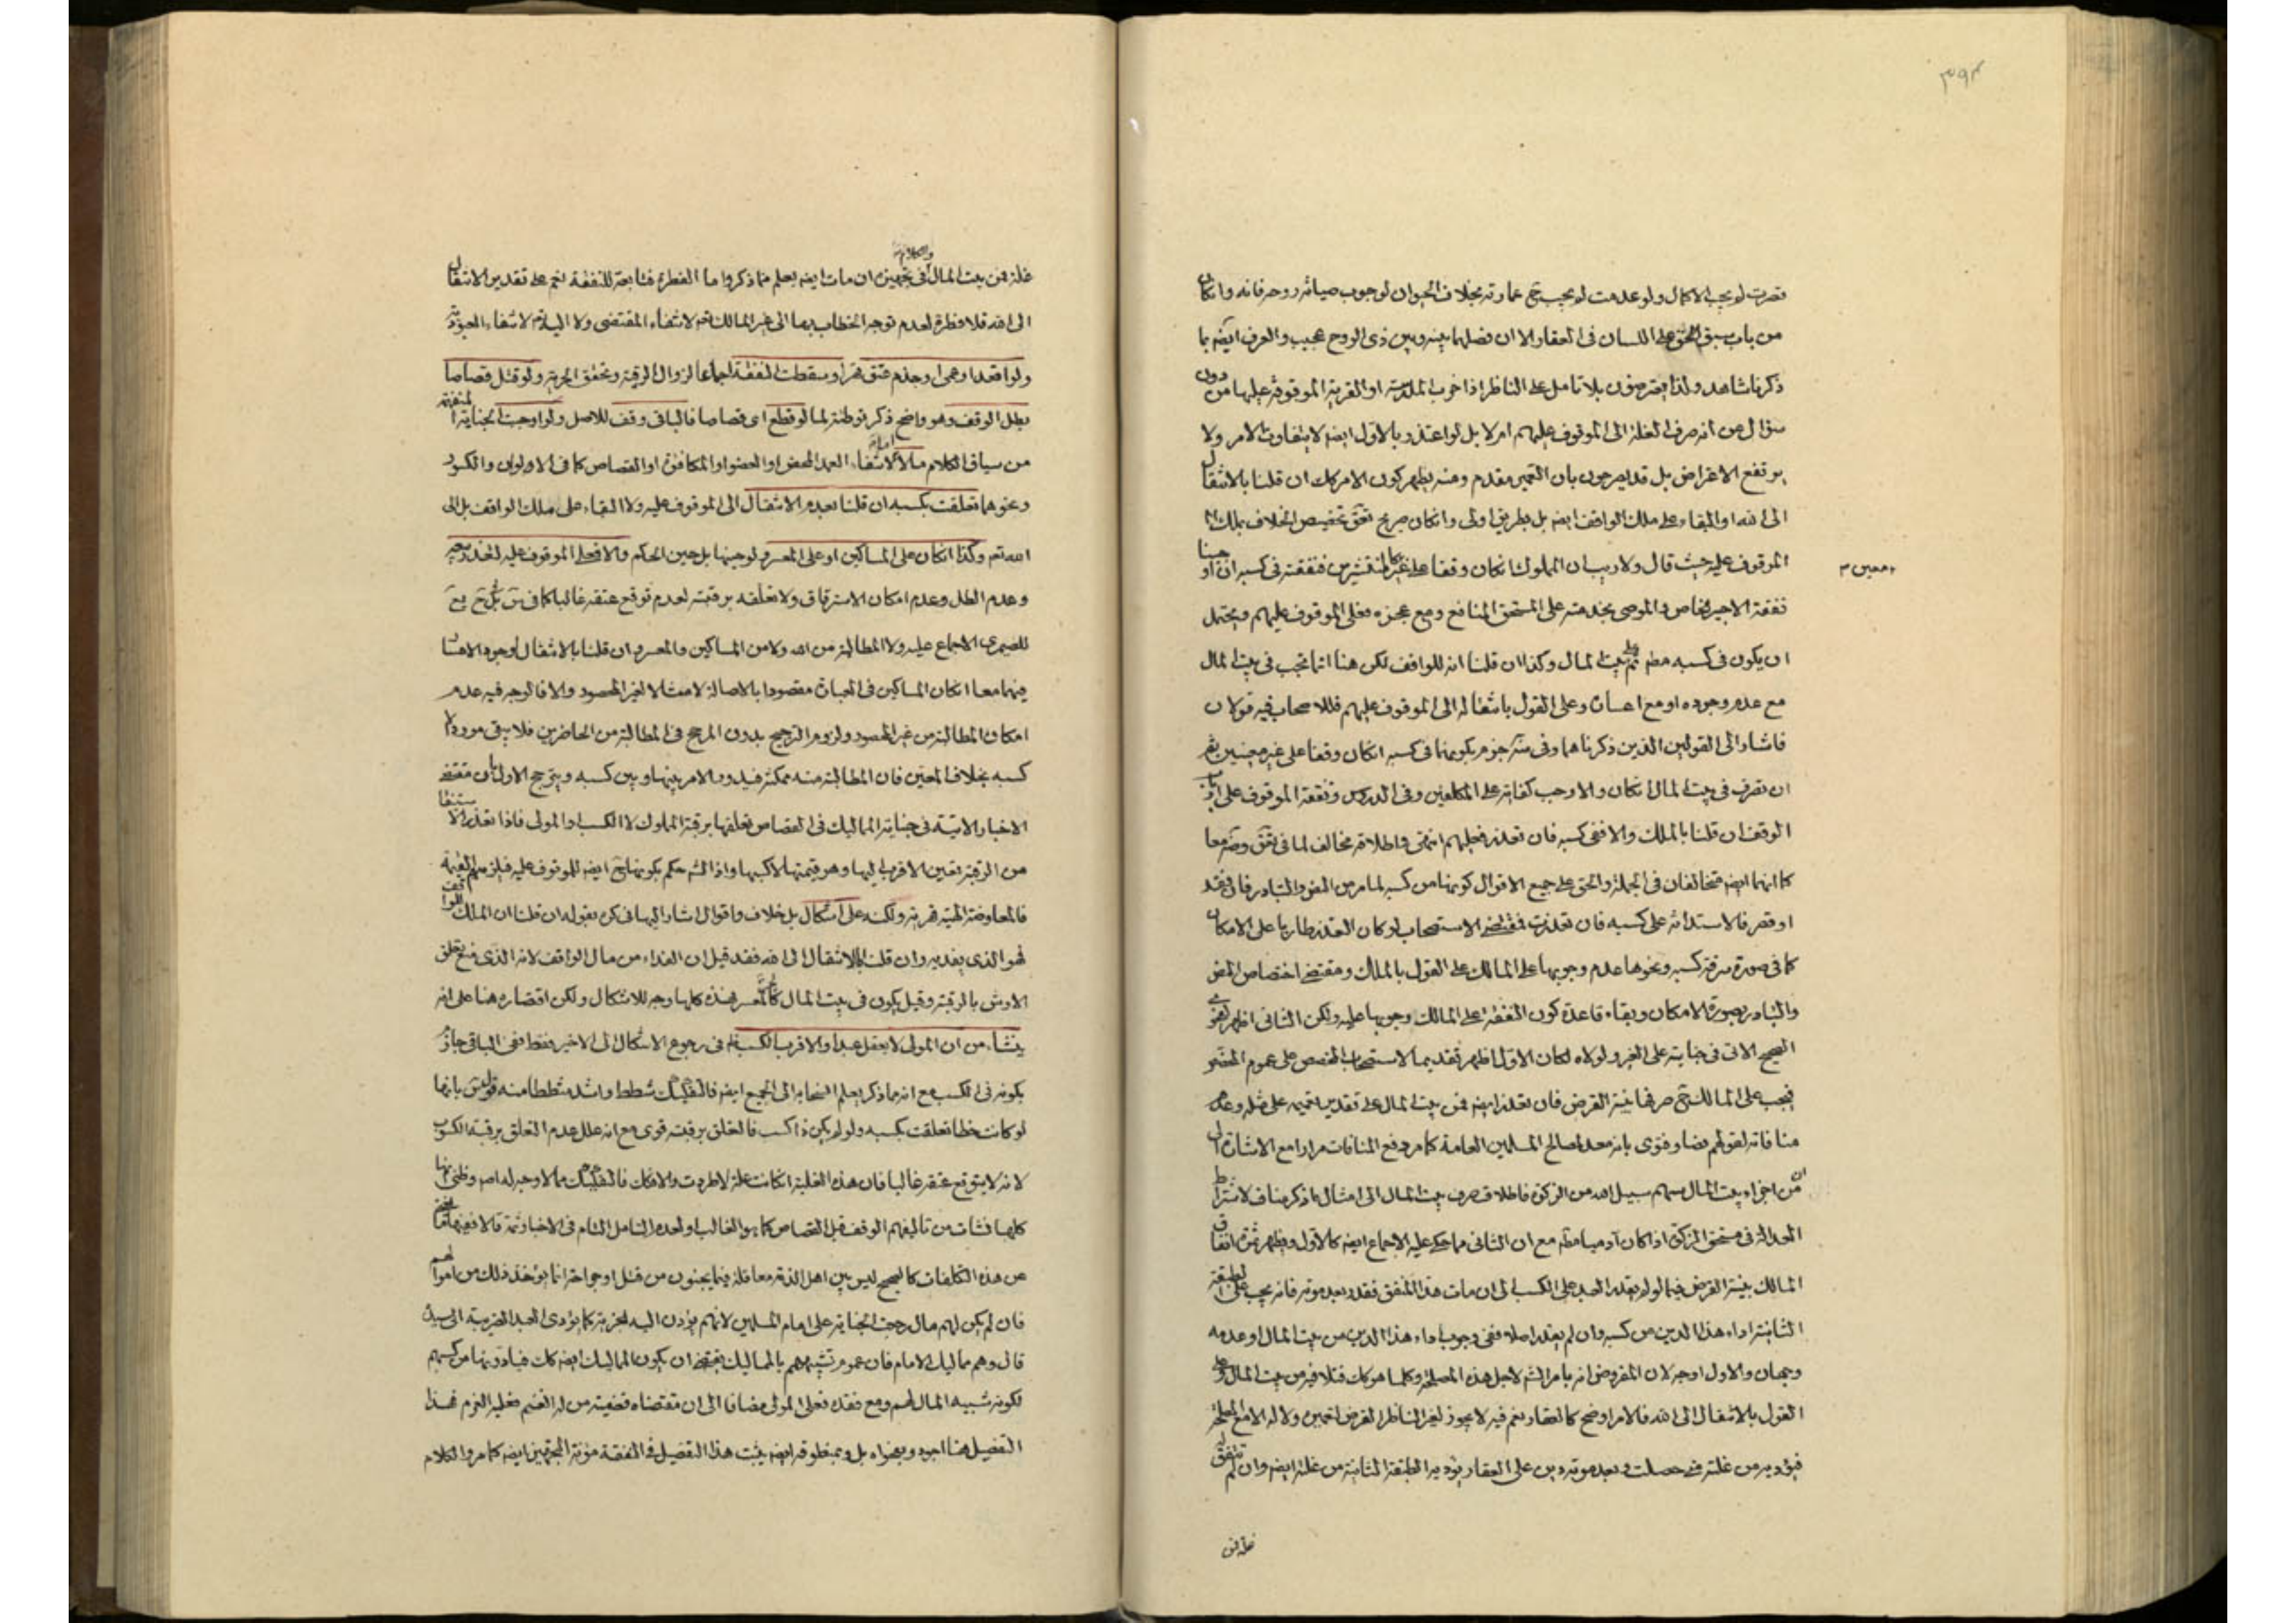 ٣٩٤
قصرت لم يجب الاكمال ولو عدمت لم يجب ح عمارته بخلاف الحيوان لوجوب صيانة روحه فانه وان كان
من باب سبق الحق على اللسان فى العقار الا ان فصلهما بينه وبين ذى الروح عجيب والعرف ايضه بما
ذكرنا شاهد ولذا يعترضون بلا تامل على الناظر اذا خرب المدرسة او القرية الموقوفة عليها من دون
سؤال عن انه صرف الغلة الى الموقوف عليهم ام لا بل لو اعتذر بالاول ايضه لا يتفاوت الامر ولا
يرتفع الاعتراض بل قد يصرحون بان التعمير مقدم ومنه يظهر كون الامر كك ان قلنا بالانتقال
الى الله او البقاء على ملك الواقف ايضه بل بطريق اولى وانكان صريح تخصيص الخلاف بملك
الموقوف عليه حيث قال ولا ريب ان المملوك انكان وقفا على غير المنتشرين فنفقته فى كسبه
معين
نفقة الاجير الخاص والموصى بخدمته على المستحق المنافع ومع عجزه فعلى الموقوف عليهم ويحتمل
ان يكون فى كسبه مطه ثم بيت المال وكذا ان قلنا انه للواقف لكن هنا انما تجب فى بيت المال
مع عدم وجوده او مع اعساره وعلى القول بانتقاله الى الموقوف عليهم فللاصحاب فيه قولان
فاشار الى القولين الذين ذكرناهما وفى جزم بكونها فى كسبه انكان وقفا على غير معينين ثم
ان تصرف فى بيت المال انكان والا وجب كفايته على المكلفين وفى الدروس ونفقة الموقوف على
الوقف ان قلنا بالملك والا ففى كسبه فان تعذر فعليهم انتهى واطلاقه مخالف لما فى معا
كما انهما ايضه متخالفان فى الجملة والحق على جميع الاقوال كونها من كسبه لما مر من النص والتبادر فان فقد
او قصر فالاستدانة على كسبه فان تعذرت فمقتضى الاستصحاب لو كان العذر طاريا على الامكان
كما فى صورة سرقة كسبه ونحوها عدم وجوبها على المالك على القول بالملك ومقتضى اختصاص النص
والتبادر بصورة الامكان وبقاء قاعدة كون النفقة على المالك وجوبها عليه ولكن الثانى اظهر
الصحيح الاتى فى جنايته على الغير ولولاه لكان الاول اظهر تقديما لاستصحاب المخصص على عموم
فيجب على المالك ح صرفها بنية القرض فان تعذر ايضه فمن بيت المال على تقدير تعميمه على مثله وعدم
منافاته لقولهم نصا وفتوى بانه معد لمصالح المسلمين العامة كما مر دفع المنافات مرارا مع الاشارة الى
ان من اجزاء بيت المال سهم سبيل الله من الزكوة فاطلاق صرف بيت المال الى امثال ما ذكر مناف لاشتراط
العدالة فى مستحق الزكوة اذا كان آدميا مطه مع ان الثانى مما حكى عليه الاجماع ايضه كالاول ويظهر ثمرة انفاق
المالك بنية القرض فيما لو لم يقدر العبد على الكسب الى ان مات هذا المنفق فقدر بعد موته فانه يجب على الطبقة
الثانية اداء هذا الدين من كسبه وان لم يقدر اصلا ففى وجوب اداء هذا الدين من بيت المال او عدمه
وجهان والاول اوجه لان المفروض انه بامر الشرع لاجل هذه المصلحة وكلما هو كك فتلافيه من بيت المال
القول بالانتقال الى الله فالامر اوضح كالعقار نعم فيه لا يجوز لغير الناظر القرض لتعميره ولا له الا مع المصلحة
فيؤديه من غلته متى حصلت وبعد موته دين على العقار يؤديه الطبقة الثانية من غلته ايضه وان لم تتفق له
غلة فمن
والكلام
غلة فمن بيت المال فى تجهيزه ان مات ايضه يعلم مما ذكر واما الفطرة فتابعة للنفقة نعم على تقدير الانتقال
الى الله فلا فطرة لعدم توجه الخطاب بها الى غير المالك لانتفاء المقتضى ولا اليه لانتفاء
ولو اقعد او عمى او جذم عتق قهرا وسقطت النفقة اجماعا لزوال الرقية وتحقق الحرية ولو قتل قصاصا
بطل الوقف وهو واضح ذكر توطئة لما لو قطع اى قصاصا فالباقى وقف للاصل ولو اوجبت الجناية
من سياق الكلام مالا لانتفاء العمد المحض او العضو او المكافئ او القصاص كما فى الاولين والكسور
ونحوهما تعلقت بكسبه ان قلنا بعدم الانتقال الى الموقوف عليه ولا البقاء على ملك الواقف بل الى
الله تعم وكذا انكان على المساكين او على المعسر لوجبتها بل حين الحكم والا فعلى الموقوف عليه
وعدم الطل وعدم امكان الاسترقاق ولا تعلقه برقبته لعدم توقع عتقه غالبا كما فى
للصيمرى الاجماع عليه ولا المطالبة من الله ولا من المساكين والمعسر وان قلنا بالانتقال
فيهما معا انكان المساكين فى العبارة مقصودا بالاصالة لا مثالا لغير المحصور والا فالوجه فيه عدم
امكان المطالبة من غير المحصور ولزوم الترجيح بدون المرجح فى المطالبة من الحاضرين فلا يبقى مورد الا
كسبه بخلاف المعين فان المطالبة منه ممكنة فيدور الامر بينها وبين كسبه ويترجح الاول بان مقتضى
الاخبار الاتية فى جناية المماليك فى القصاص تعلقها برقبة المملوك لا الكسب او المولى فاذا تعذر الاستيفاء
من الرقبة تعين الاقرب اليها وهو قيمتها لا كسبها واذا لم يحكم بكونها ايضه للموقوف عليه فيلزمهم القيمة
فالمعاوضة قهرية ولكنه على اشكال بل خلاف واقوال اشار اليها فى كره بقوله ان قلنا ان الملك للواقف
فهو الذى يفديه وان قلنا بالانتقال الى الله فقد قيل ان الفداء من مال الواقف لانه الذى منع تعلق
الارش بالرقبة وقيل يكون فى بيت المال كالحر المعسر فهذه كلها وجه للاشكال ولكن اقتصاره هنا على انه
ينشاء من ان المولى لا يعقل عبدا والاقرب الكسب فى رجوع الاشكال الى الاخير فقط ففى الباقى جازم
بكونه فى الكسب مع انه مما ذكر يعلم انسحابه الى الجميع ايضه فالتفكيك شطط واشد شططا منه بانها
لو كانت خطأ تعلقت بكسبه ولو لم يكن ذا كسب فالتعلق برقبته قوى مع انه علل عدم التعلق برقبة الكسوب
لانه لا يتوقع عتقه غالبا فان هذه الغلبة انكانت علة لاطردت والا فكك فالتفكيك مما لا وجه له اصلا وظنى انها
كلها نشات من تاليفهم الوقف قبل القصاص كما هو الغالب ولعدم التامل التام فى الاخبار ثمة والا ففيها
عن هذه التكلفات كالصحيح ليس بين اهل الذمة معاقلة فيما يجنون من قتل او جراحة انما يؤخذ ذلك من اموالهم
فان لم يكن لهم مال رجعت الجناية على امام المسلمين لانهم يؤدون اليه الجزية كما يؤدى العبد الضريبة الى سيده
قال وهم مماليك الامام فان عموم تشبيههم بالمماليك يقتضى ان يكون المماليك ايضه كك فيؤدونها من كسبهم
لكونه شبيه المال لهم ومع فقده فعلى المولى مضافا الى ان مقتضاه قضية من له الغنم فعليه الغرم فهذا
التفصيل هنا اجود وبفحواه بل وبمنطوقه ايضه يثبت هذا التفصيل فى النفقة مؤنة التجهيز ايضه كما مر والكلام